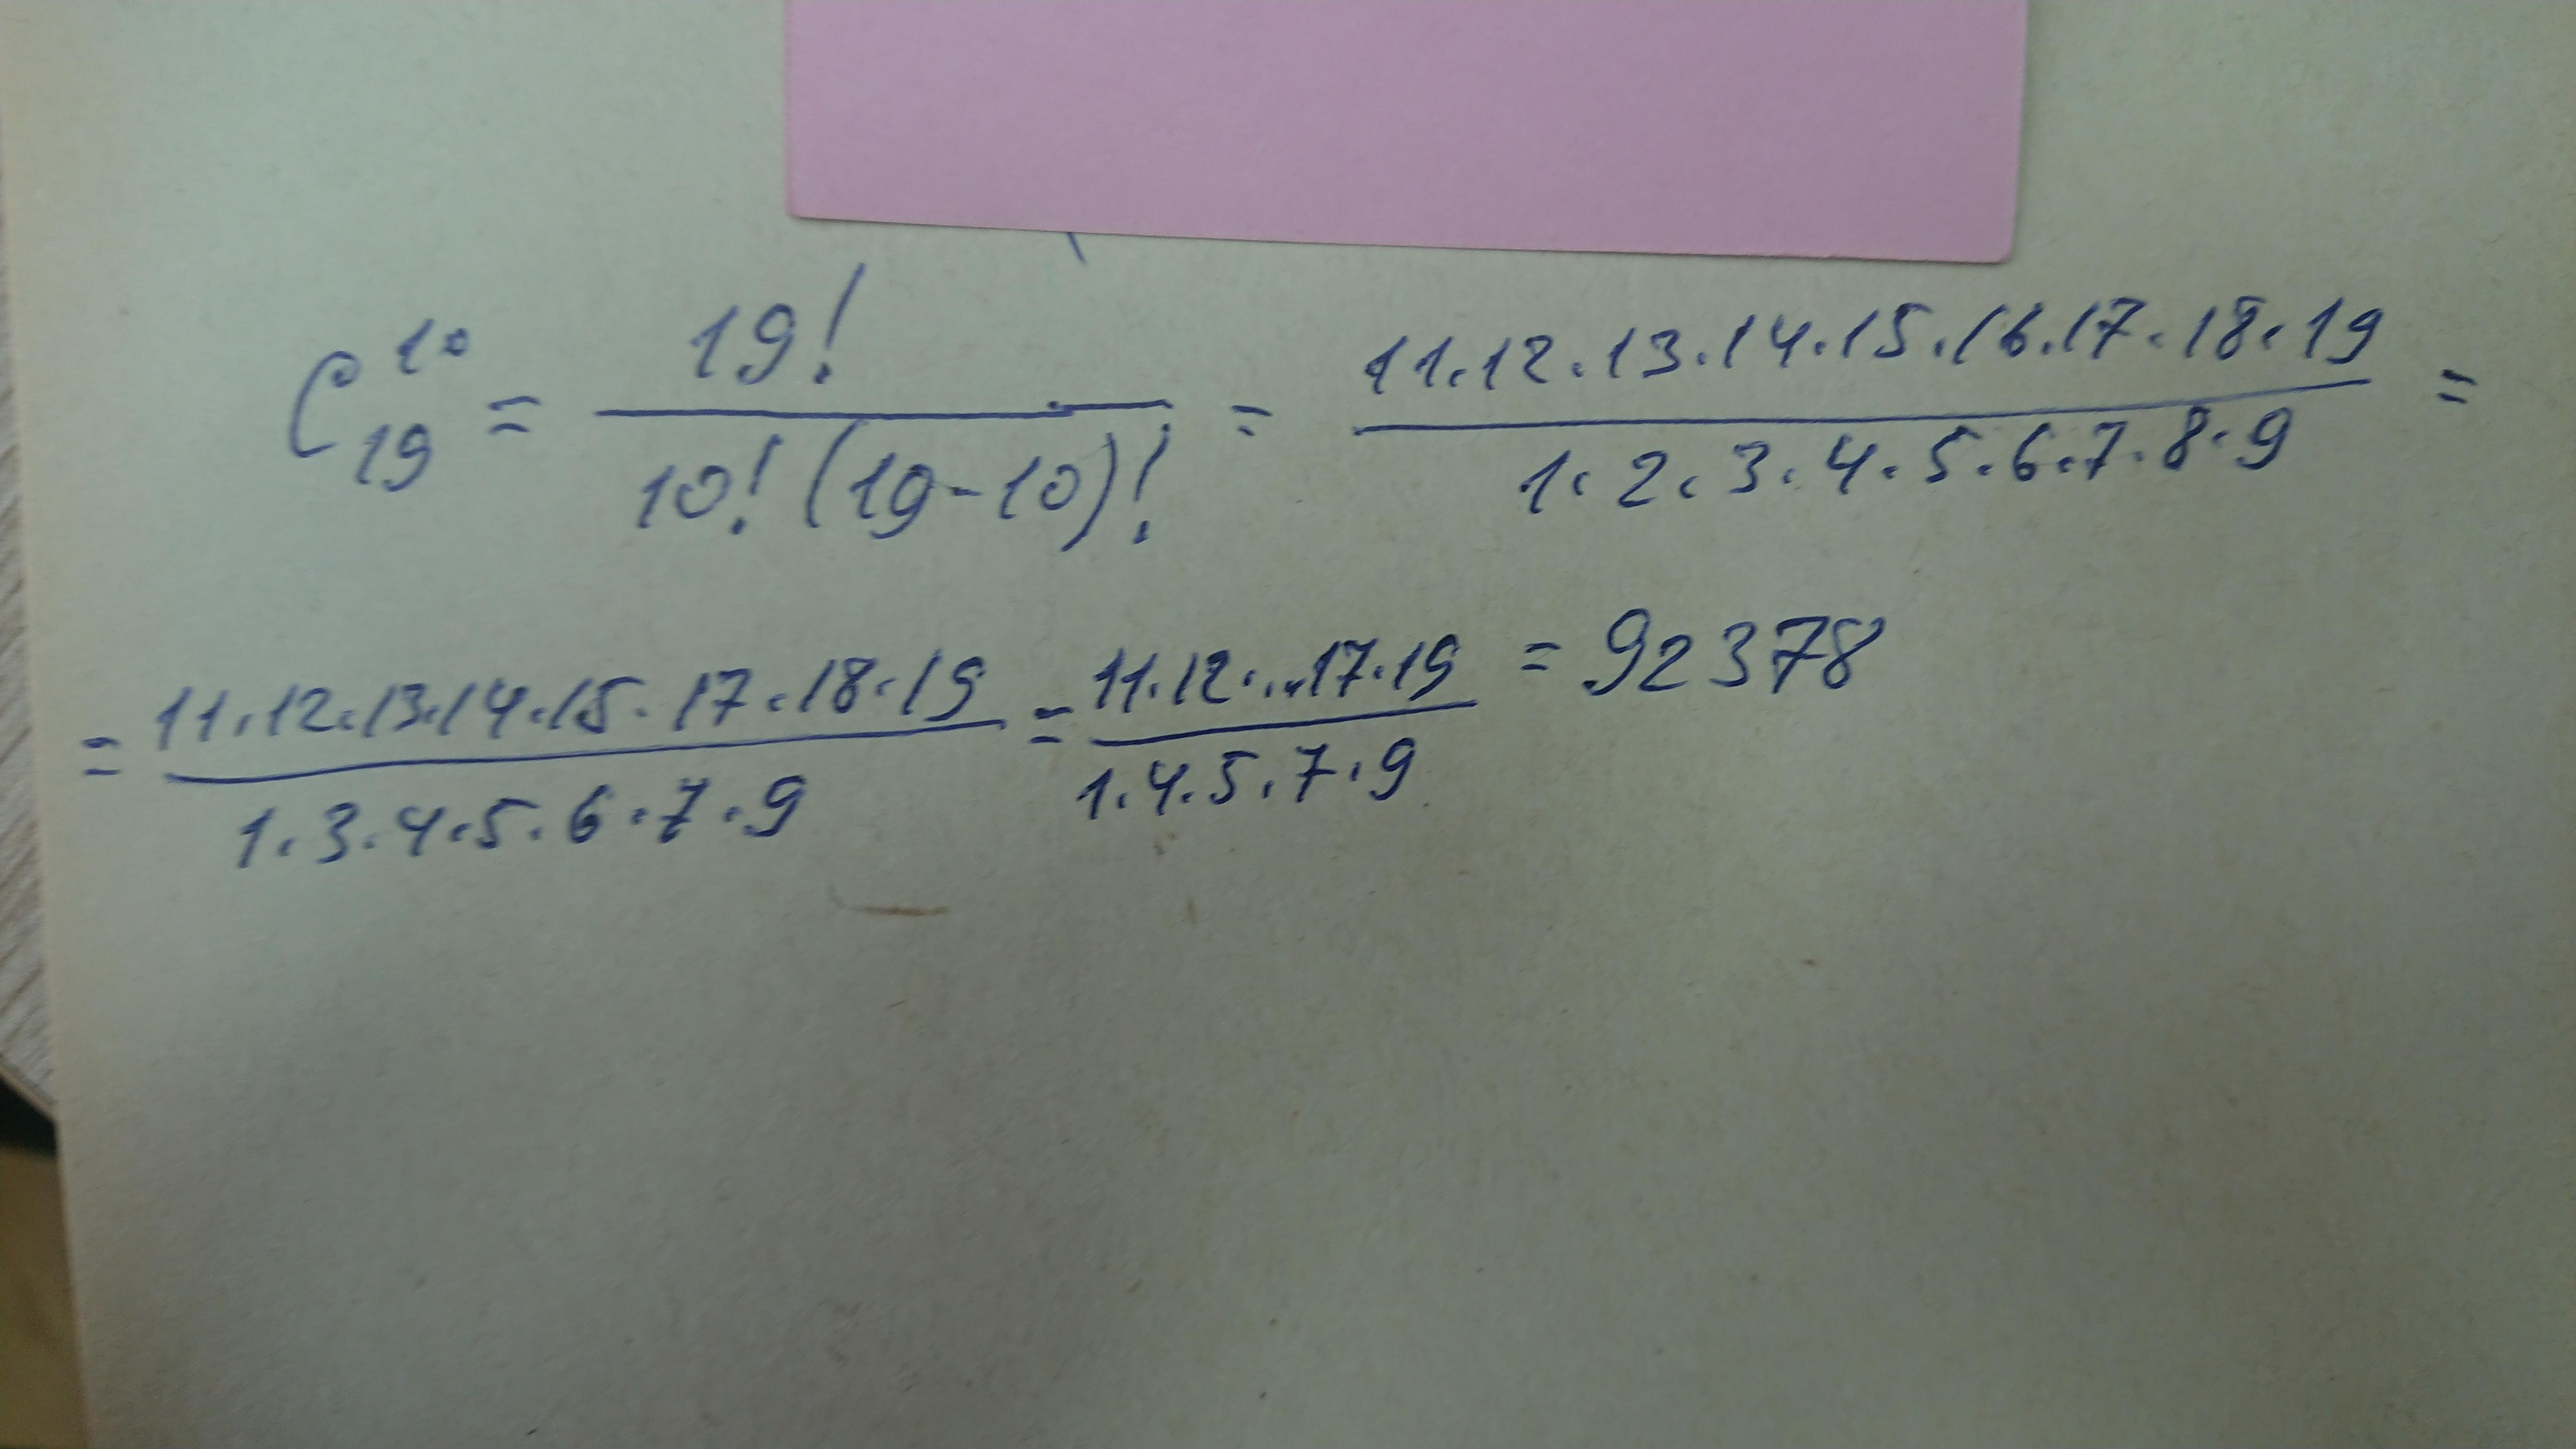 C₁₉¹⁰ = 19! / 10! (19-10)! = 11·12·13·14·15·16·17·18·19 / 1·2·3·4·5·6·7·8·9 =
= 11·12·13·14·15·17·18·19 / 1·3·4·5·6·7·9 = 11·12·...17·19 / 1·4·5·7·9 = 92378